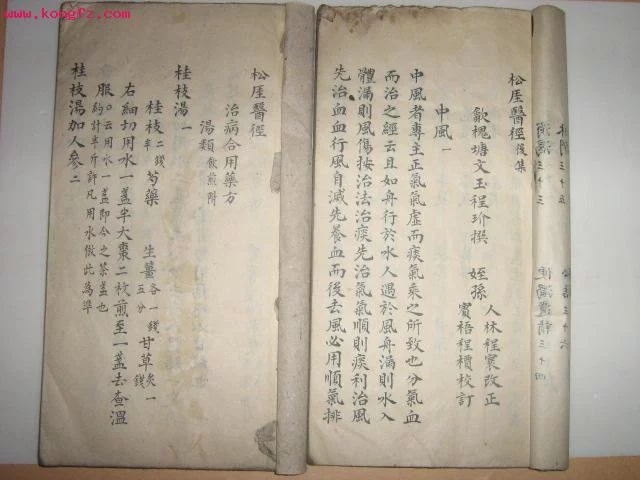 www.kongfz.com
松厓醫徑後集
歙槐塘文玉程玠撰 姪孫
人林程寰改正
賓梧程櫝校訂
中風一
中風者專主正氣氣虛而痰氣乘之所致也分氣血
而治之經云且如舟行於水人過於風舟漏則水入
體漏則風傷按治法治痰先治氣氣順則痰利治風
先治血血行風自減先養血而後去風必用順氣排
松厓醫徑
治病合用藥方
湯類 飲煎附
桂枝湯一
桂枝 二錢半 芍藥 生薑 各一錢五分 甘草 炙一錢
右細切用水一盞半大棗二枚煎至一盞去查溫
服 ○云用水一盞即今之茶盞也約計半斤許凡用水倣此為準
桂枝湯加人參二